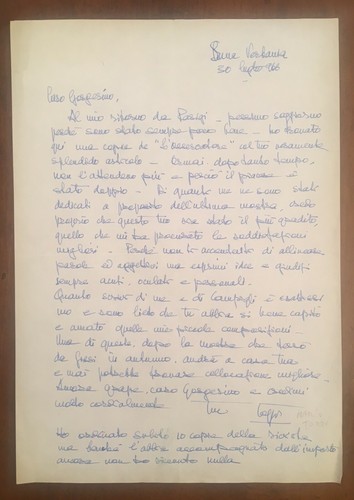 30 luglio '66
Caro Gorgerino,
Al mio ritorno da Parigi - pessimo soggiorno
perché sono stato sempre poco bene - ho trovato
qui una copia de "L'osservatore" col tuo veramente
splendido articolo - Ormai, dopo tanto tempo,
non l'attendevo più e perciò il piacere è
stato doppio - Di quanti me ne sono stati
dedicati a proposito dell'ultima mostra, credo
proprio che questo tuo sia stato il più gradito,
quello che mi ha procurato le soddisfazioni
migliori - Perché non ti accontenti di allineare
parole ed aggettivi ma esprimi idee e giudizi
sempre acuti, oculati e personali.
Quanto scrivi di me e di Campigli è esattissi
mo e sono lieto che tu abbia sì bene capito
e amato quelle mie piccole composizioni -
Una di queste, dopo la mostra che terrò
da Gissi in autunno, andrà a casa tua
e mai potrebbe trovare collocazione migliore -
Ancora grazie, caro Gorgerino e credimi
molto cordialmente tuo
Ho ordinato subito 10 copie della rivista
ma benché l'abbia accompagnato dall'importo
ancora non ho ricevuto nulla